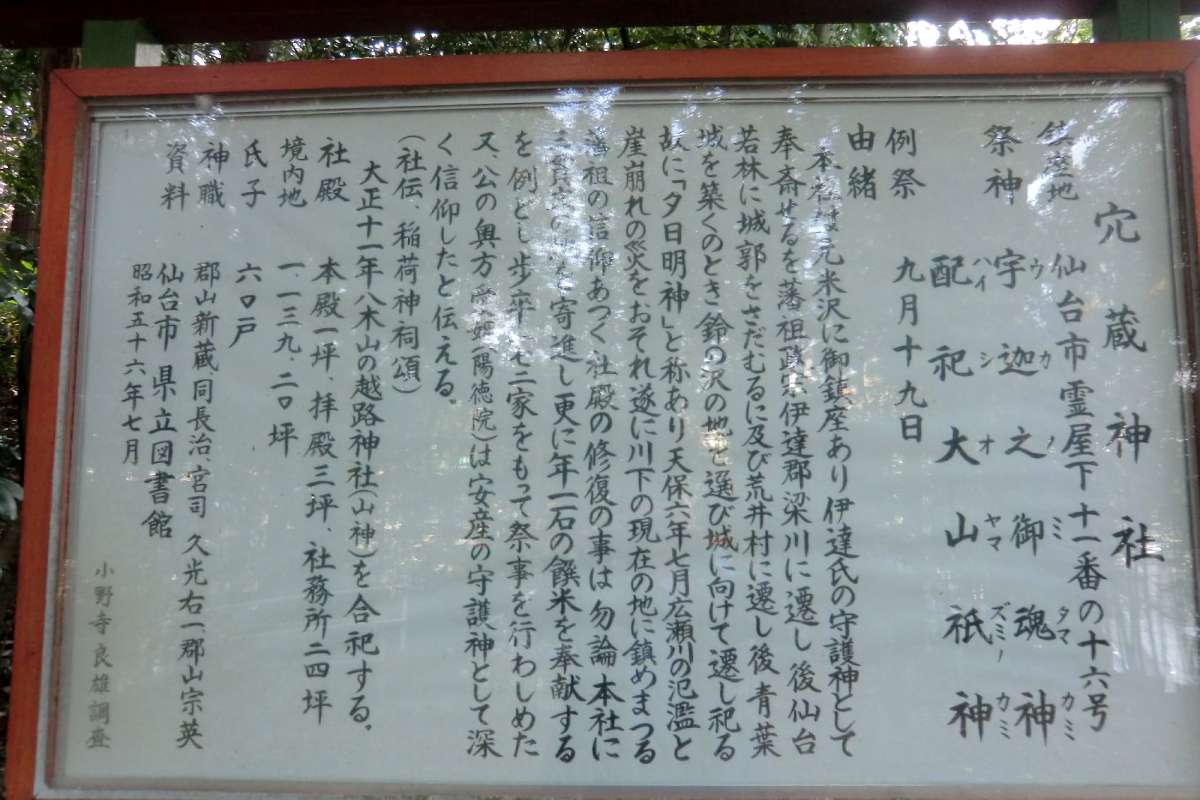 穴蔵神社
鎮座地 仙台市霊屋下十一番の十六号
祭神 宇迦之御魂神
ウカノミタマカミ
配祀大山祇神
ハイシオヤマズミノカミ
例祭 九月十九日
由緒
本社は元米沢に御鎮座あり伊達氏の守護神として
奉斎せるを藩祖政宗伊達郡梁川に遷し後仙台
若林に城郭をさだむるに及び荒井村に遷し後青葉
城を築くのとき鈴の沢の地を選び城に向けて遷し祀る
故に「夕日明神」と称あり天保六年七月広瀬川の氾濫と
崖崩れの災をおそれ遂に川下の現在の地に鎮めまつる
藩祖の信仰あつく社殿の修復の事は勿論本社に
寄進し更に年一石の饌米を奉献する
を例とし歩卒 二家をもって祭事を行わしめた
又、公の奥方 姫(陽徳院)は安産の守護神として深
く信仰したと伝える。
(社伝、稲荷神祠頌)
大正十一年八木山の越路神社(山神)を合祀する。
社殿 本殿一坪、拝殿三坪、社務所二四坪
境内地 一.一三九.二〇坪
氏子 六〇戸
神職 郡山新蔵同長治、宮司 久光右一郡山宗英
資料 仙台市県立図書館
昭和五十六年七月
小野寺良雄調査